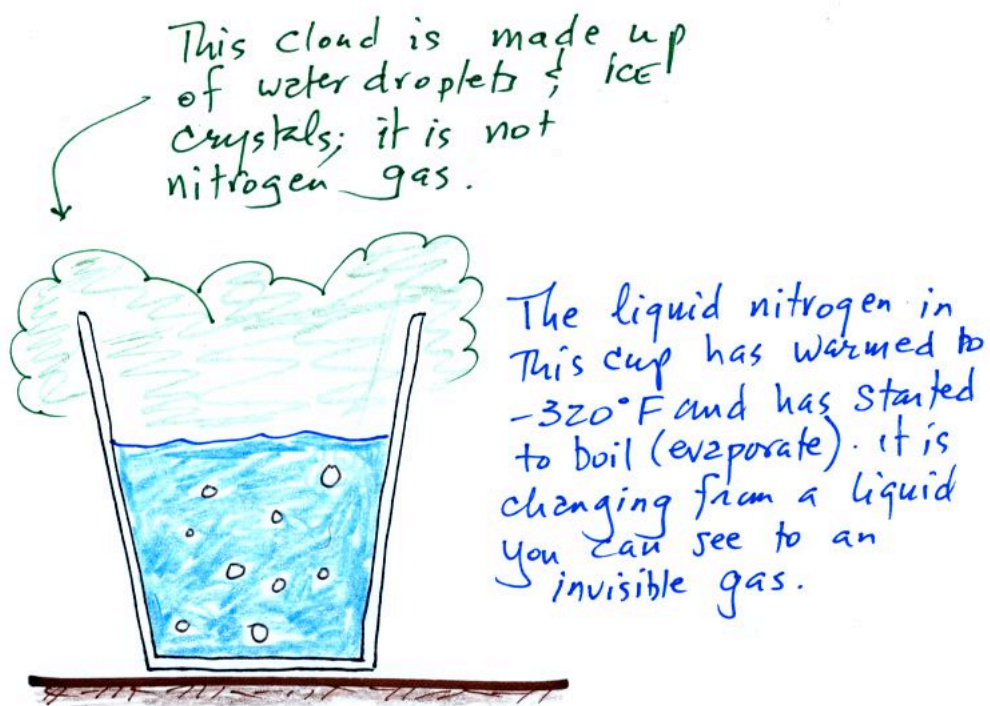 This cloud is made up
of water droplets & ice
crystals; it is not
nitrogen gas.
The liquid nitrogen in
This cup has warmed to
-320°F and has started
to boil (evaporate). it is
changing from a liquid
you can see to an
invisible gas.